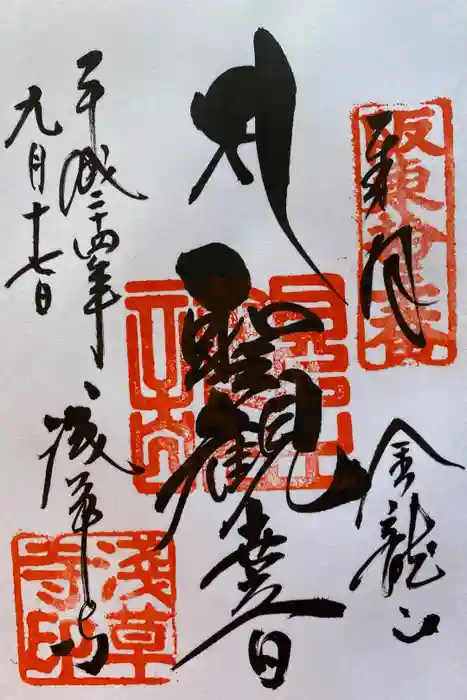 奉拝
坂東第十三番
金龍山
聖観世音
浅草寺
平成二十四年
九月十七日
淺草
寺印